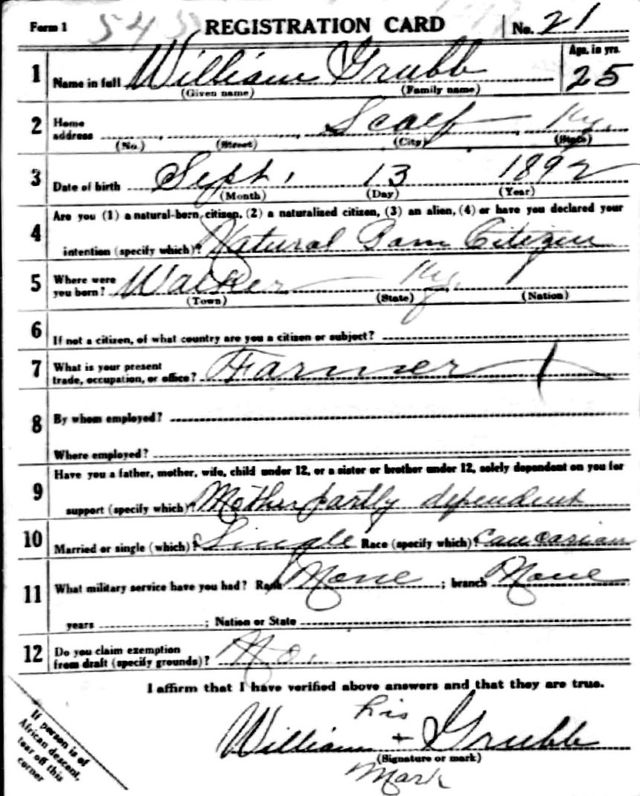 Form 1 545 REGISTRATION CARD No. 21
1 Name in full William Grubb Age, in yrs. 25
(Given name) (Family name)
2 Home address Scalf Ky.
(No.) (Street) (City) (State)
3 Date of birth Sept. 13 1892
(Month) (Day) (Year)
4 Are you (1) a natural-born citizen, (2) a naturalized citizen, (3) an alien, (4) or have you declared your
intention (specify which)? Natural Born Citizen
5 Where were you born? Walker Ky.
(Town) (State) (Nation)
6 If not a citizen, of what country are you a citizen or subject?
7 What is your present trade, occupation, or office? Farmer
8 By whom employed?
Where employed?
9 Have you a father, mother, wife, child under 12, or a sister or brother under 12, solely dependent on you for
support (specify which)? Mother partly dependent
10 Married or single (which)? Single Race (specify which)? Caucasian
11 What military service have you had? Rank None ; branch None
years ; Nation or State
12 Do you claim exemption from draft (specify grounds)? No.
I affirm that I have verified above answers and that they are true.
If person is of
African descent,
tear off this
corner
his
William + Grubb
(Signature or mark)
Mark